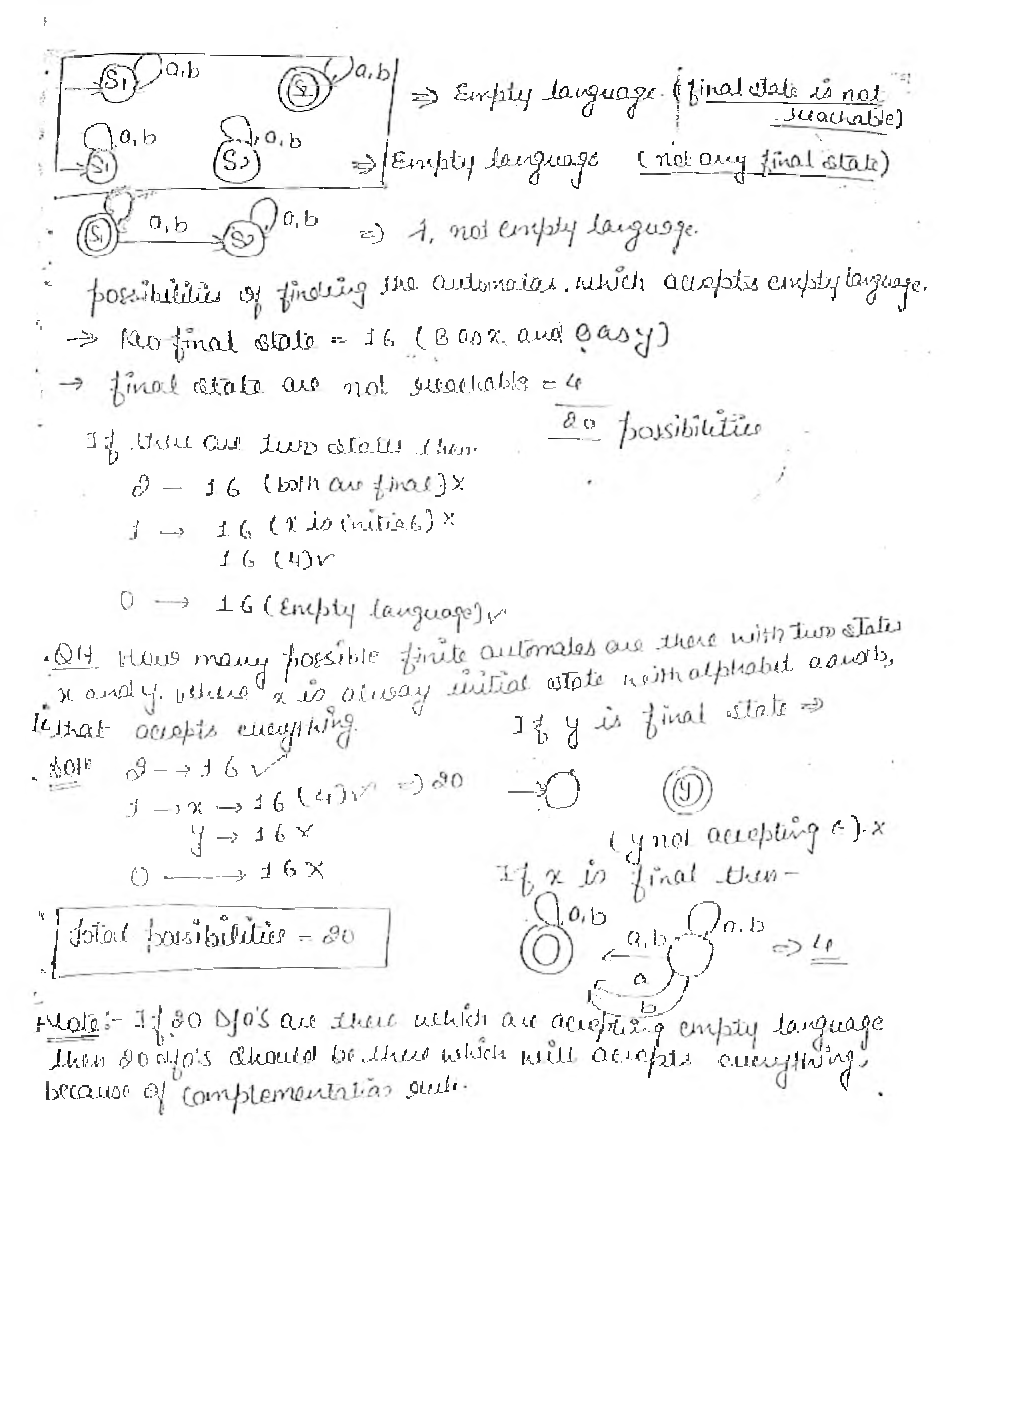 S1 a,b S2 a,b ⇒ Empty language. (final state is not reachable)
S1 a,b S2 a,b ⇒ Empty language (not any final state)
S1 a,b S2 a,b ⇒ 1, not empty language.
possibilities of finding the automatas, which accepts empty language.
→ No final state = 16 (Basx and easy)
→ final state are not reachable = 4
20 possibilities
If there are two states then
2 – 16 (both are final) x
1 → 16 (x is initial) x
16 (4) ✓
0 → 16 (Empty language) ✓
Q11 How many possible finite automates are there with two states
x and y, where x is alway initial state with alphabet a and b,
that accepts everything.
If y is final state ⇒
Solⁿ 2 –→ 16 ✓
1 → x → 16 (4) ✓ ⇒ 20
y → 16 x
0 → 16 x
y
(y not accepting ϵ). x
If x is final then –
a,b a,b a,b ⇒ 4
a
b
Total possibilities = 20
Note:- If 20 Dfa's are there which are accepting empty language
then 20 dfa's should be there which will accepts everything,
because of complementation rule.